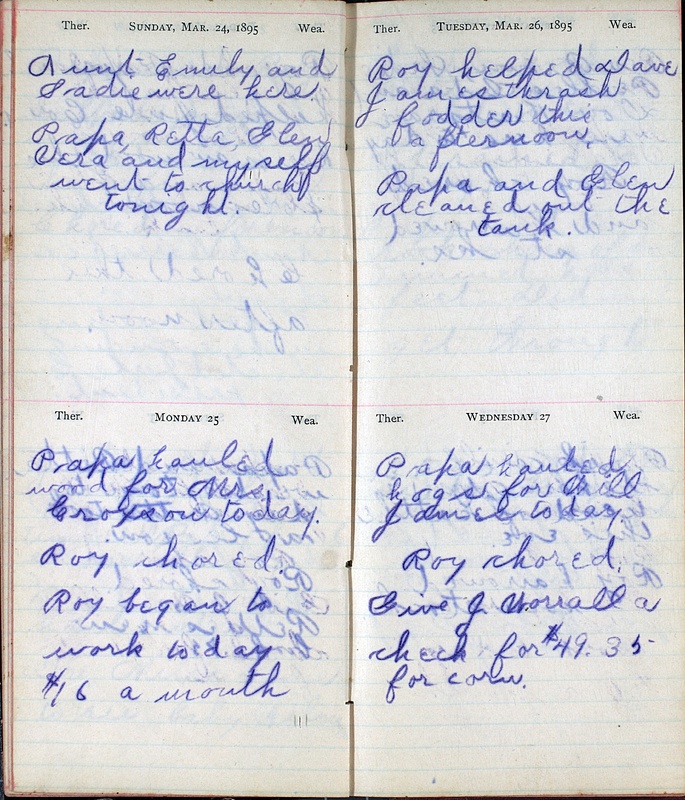 Ther. SUNDAY, MAR. 24, 1895 Wea.
Aunt Emily and
Sadie were here
Papa, Retta, Glen
Vera and myself
went to church
tonight.
Ther. MONDAY 25 Wea.
Papa hauled
wood for Mrs.
Croxson today.
Roy chored.
Roy began to
work today
$16 a month
Ther. TUESDAY, MAR. 26, 1895 Wea.
Roy helped Dave
James thrash
fodder this
afternoon.
Papa and Glen
cleaned out the
tank.
Ther. WEDNESDAY 27 Wea.
Papa hauled
hogs for Will
James today
Roy chored.
Give J Worrall a
check for $49.35
for corn.